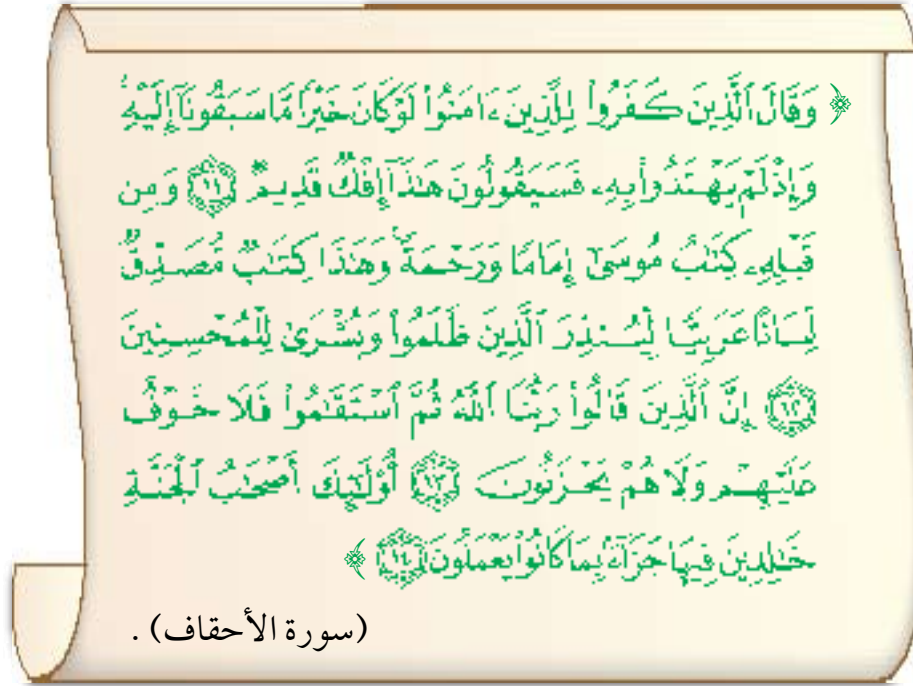 ﴿ وَقَالَ ٱلَّذِينَ كَفَرُوا۟ لِلَّذِينَ ءَامَنُوا۟ لَوْ كَانَ خَيْرًا مَّا سَبَقُونَآ إِلَيْهِ
وَإِذْ لَمْ يَهْتَدُوا۟ بِهِۦ فَسَيَقُولُونَ هَٰذَآ إِفْكٌ قَدِيمٌ ١١ وَمِن
قَبْلِهِۦ كِتَٰبُ مُوسَىٰٓ إِمَامًا وَرَحْمَةً وَهَٰذَا كِتَٰبٌ مُّصَدِّقٌ
لِّسَانًا عَرَبِيًّا لِّيُنذِرَ ٱلَّذِينَ ظَلَمُوا۟ وَبُشْرَىٰ لِلْمُحْسِنِينَ
١٢ إِنَّ ٱلَّذِينَ قَالُوا۟ رَبُّنَا ٱللَّهُ ثُمَّ ٱسْتَقَٰمُوا۟ فَلَا خَوْفٌ
عَلَيْهِمْ وَلَا هُمْ يَحْزَنُونَ ١٣ أُو۟لَٰٓئِكَ أَصْحَٰبُ ٱلْجَنَّةِ
خَٰلِدِينَ فِيهَا جَزَآءًۢ بِمَا كَانُوا۟ يَعْمَلُونَ ١٤ ﴾
(سورة الأحقاف) .